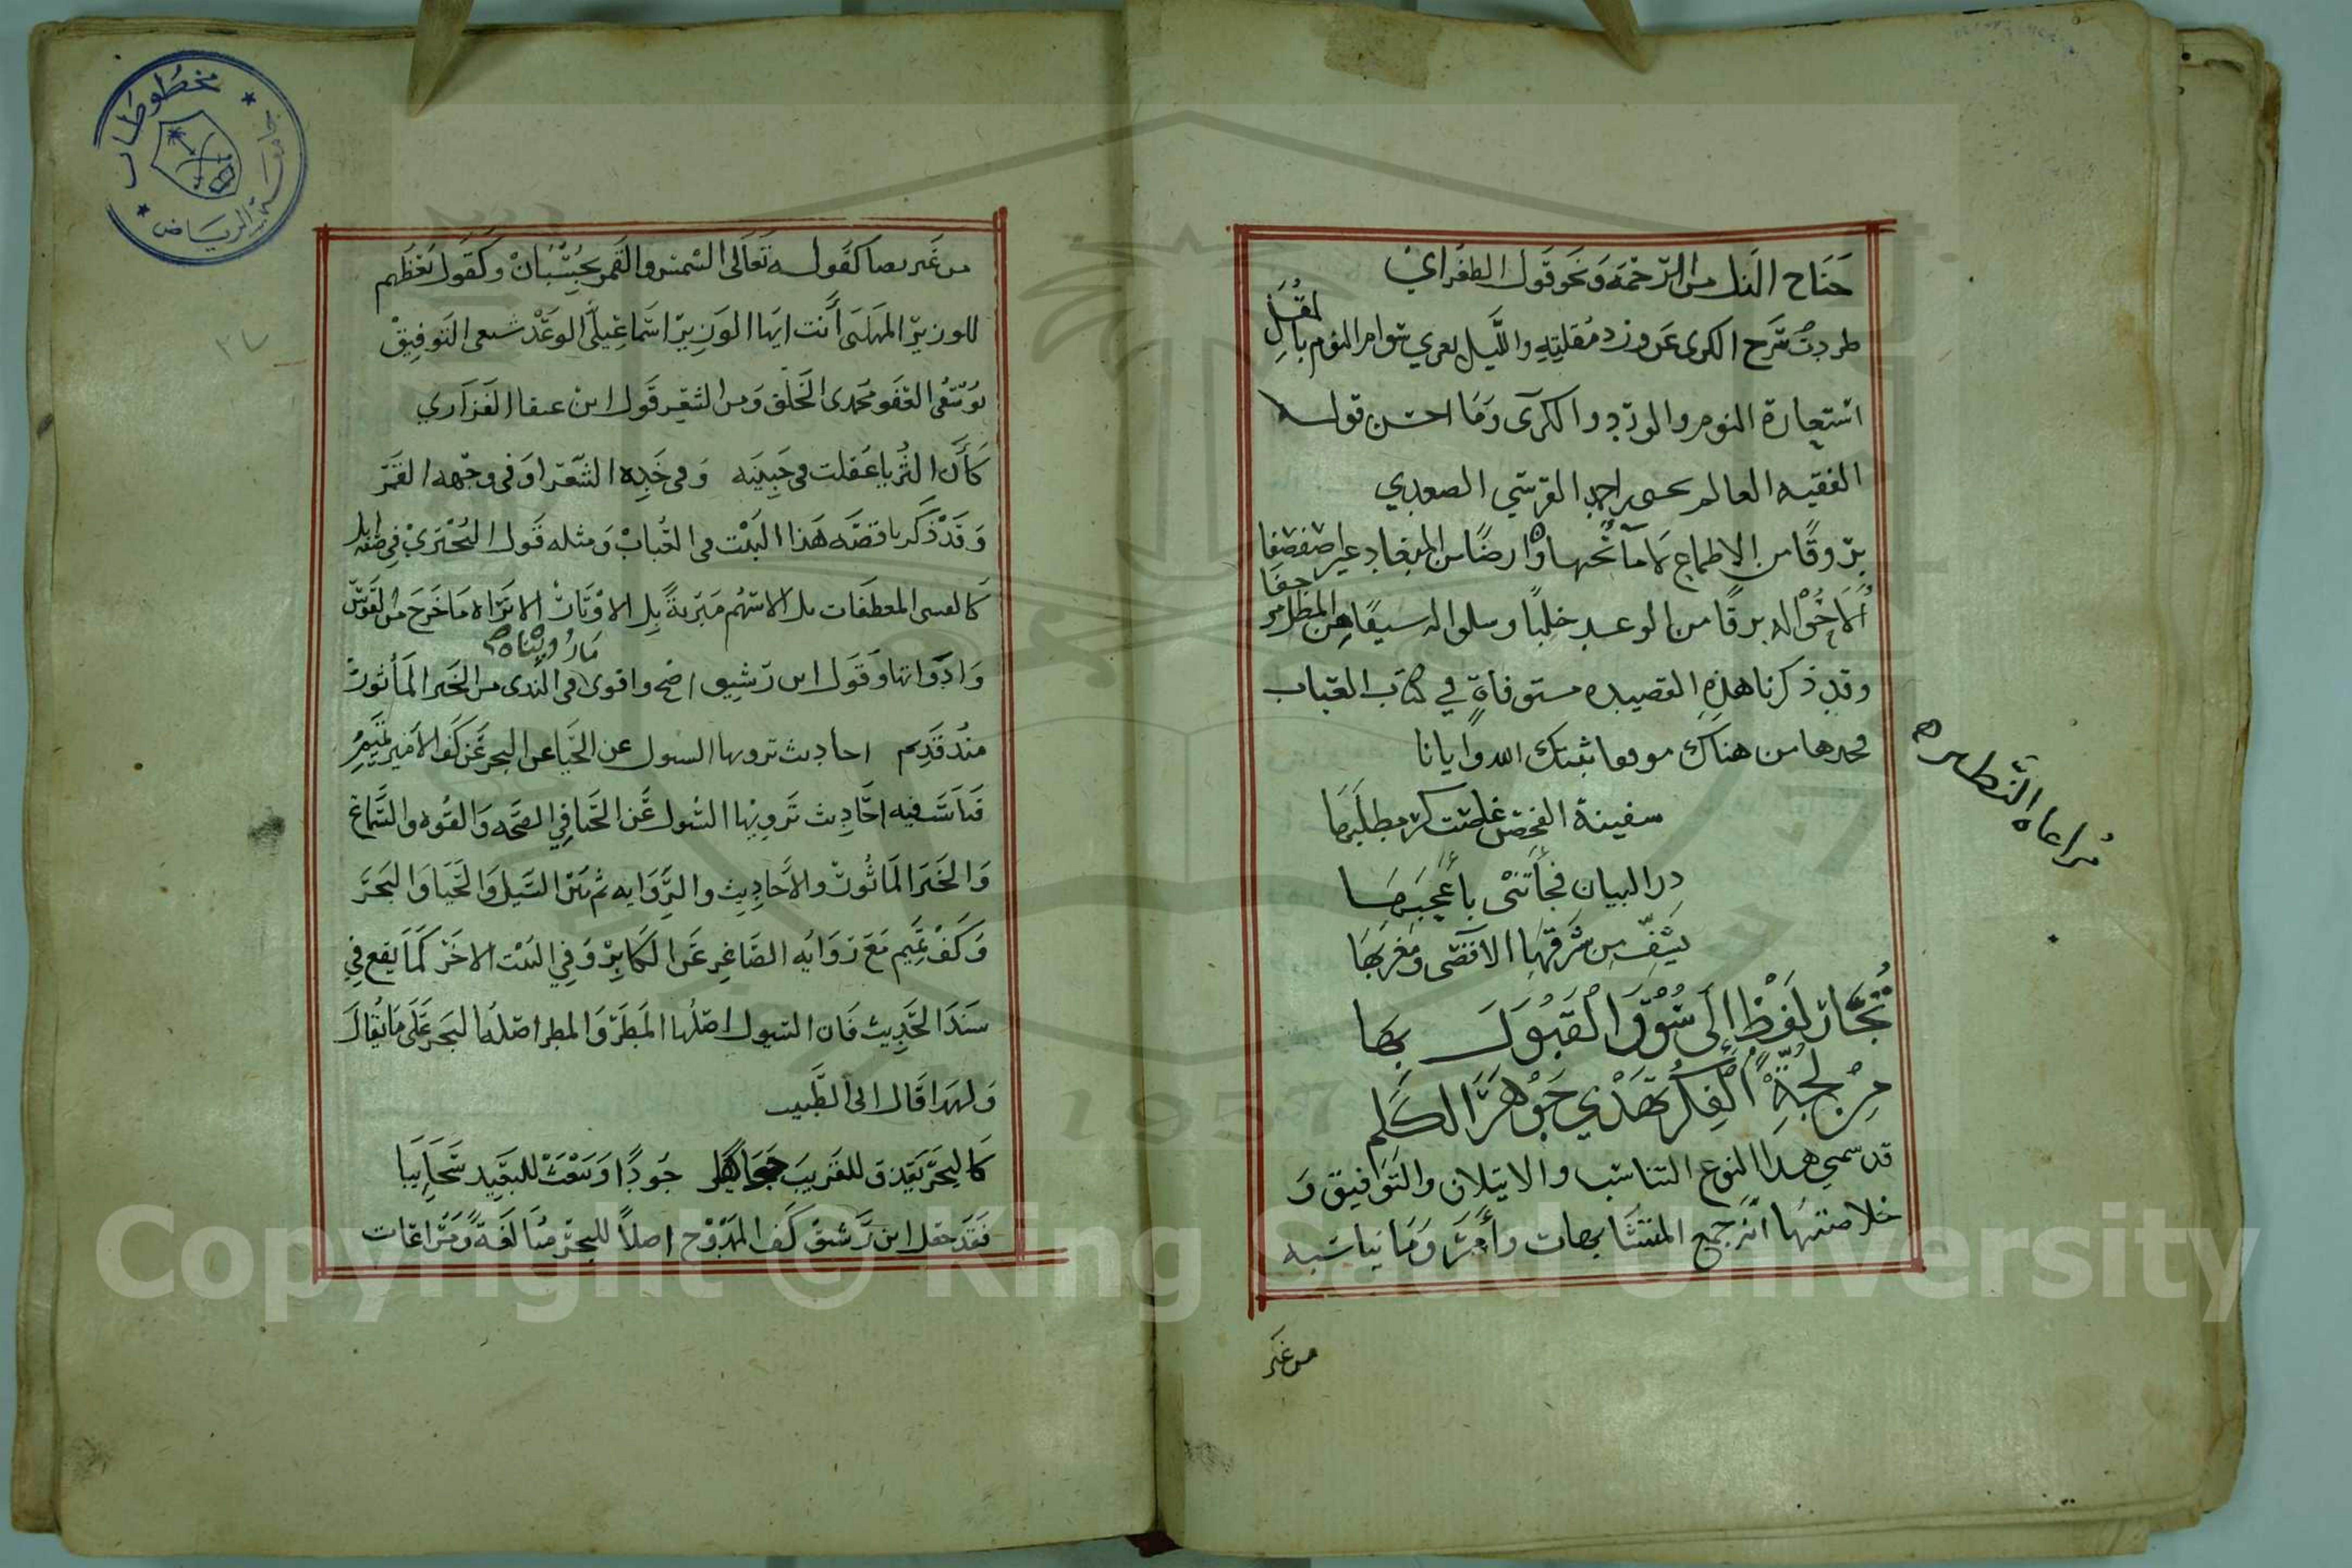 جناح الذل من الرحمة ونحو قول الطغراي
طردت سرح الكرى عن ورد مقلته والليل يغري سوام النوم بالمقل
استعارة النوم والورد والكرى وما احسن قوله
الفقيه العالم يحيى احمد القرشي الصعدي
بروقا من الاطماع
الا خوا له برقا من الوعد خلبا وسلوا له سيفا من المطل مرهفا
وقد ذكرنا هذه القصيده مستوفاة في كتاب العباب
هناك موفقا ثبتك الله وايانا
سفينة الفحص غاصت كم بمطلبها
در البيان فجأتني باعجبها
من شرقها الاقصى ومغربها
تجار لفظ إلى سوق القبول بها
من لجة الفكر تهدي جوهر الكلم
قد سمي هذا النوع التناسب والايتلاف والتوافيق و
خلاصتها انه جمع المتشابهات وأمر وما يناسبه
من غير
مراعاه النظير
من غير تضاد كقوله تعالى الشمس والقمر بحسبان وكقول بعضهم
للوزير المهلبي أنت ايها الوزير اسماعيلي الوعد شعبي التوفيق
يوسفي العفو محمدي الخلق ومن الشعر قول ابن عنقا الفزاري
كأن الثريا علقت في جبينه وفي خده الشعرا وفي وجهه القمر
وقد ذكرنا قصه هذا البيت في العباب ومثله قول البحتري في صفه ابل
كالقسي المعطفات بل الاسهم مبرية بل الاوتار الا تراه ما خرج من القوس
وادواتها وقول ابن رشيق اصح واقوى ما رويناه في الندى من الخبر المأثور
منذ قديم احاديث ترويها السيول عن الحيا عن البحر عن كف الامير تميم
فناسب فيه احاديث ترويها السيول عن الحيا في الصحه والقوه والسماع
والخبر المأثور والاحاديث والروايه ثم بين السيل والحيا والبحر
وكف تميم مع روايه الصاغر عن الكابر وفي البيت الاخر كما يقع في
سند الحديث فان السيول اصلها المطر والمطر اصله البحر على ما يقال
ولهذا قال ابي الطيب
كالبحر يقذف للقريب جواهرا جودا ويبعث للبعيد سحايبا
فقد جعل ابن رشيق كف الممدوح اصلا للبحر مبالغة ومراعات
٢٧
مخطوطات
جامعة الرياض
1957
Copyright © King Saud University